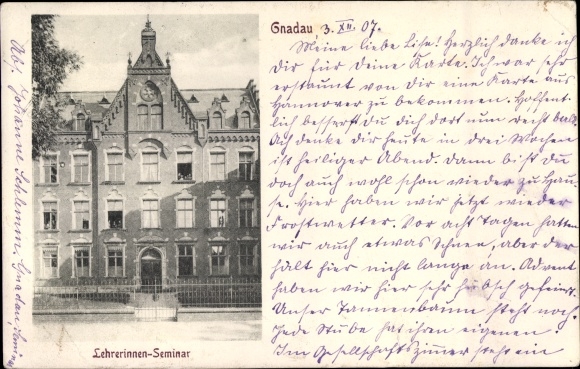 Gnadau, 3. XII. 07.
Meine liebe Lise! Herzlich danke ich
Dir für Deine Karte. Ich war sehr
erstaunt von dir eine Karte aus
Hannover zu bekommen. Hoffent-
lich besserst du dich dort nun recht bald.
Ach denke dir heute in drei Wochen
ist heiliger Abend. Dann bist du
doch auch wohl schon wieder zu Hau-
se. Hier haben wir jetzt wieder
Frostwetter. Vor acht Tagen hatten
wir auch etwas Schnee, aber der
hält hier nicht lange an. Advent
haben wir hier sehr hübsch gefeiert.
Unser Tannenbaum steht noch.
Jede Stube hat ihren eigenen!
Im Gesellschaftszimmer steht ein
Lehrerinnen-Seminar
Abs. Johanne Schlemm, Gnadau,